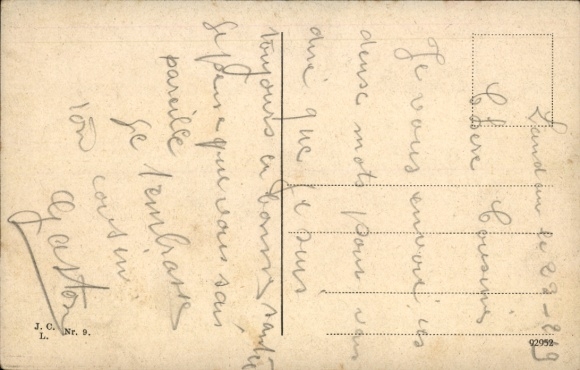 Landau le 23-8-29
Chère Cousine
Je vous envoie ces
deuse mots pour vous
dire que je suis
toujours en bonne santé
Je pense que vous sai
pareille
Je t'embrasse
Ton cousin
Gaston
J. C.
L.
Nr. 9.
92952